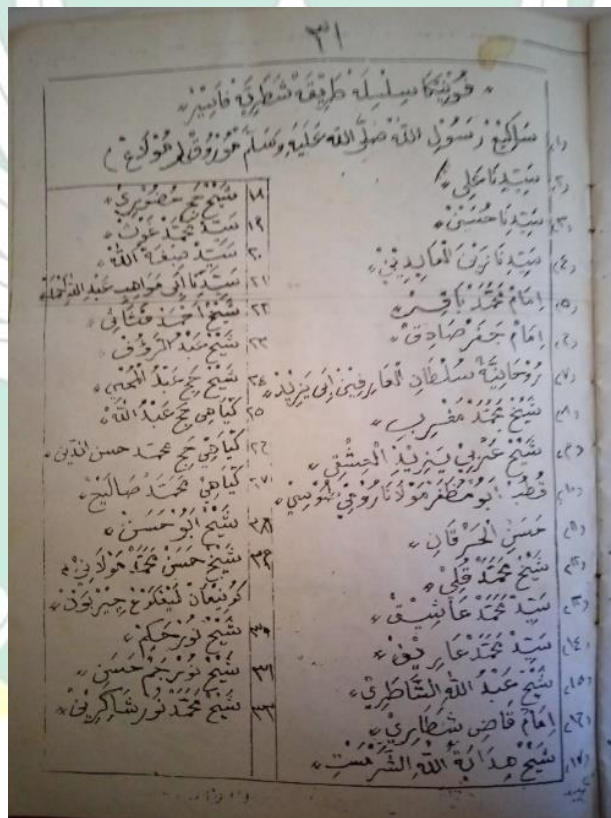 ٣١
فونيكا سلسله طريقة شطرية فاسير
(١) سكيڠ رسول الله صلى الله عليه وسلم
(٢) سَيِّدِنَا عَلِي
(٣) سَيِّدِنَا حُسَيْن
(٤) سَيِّدِنَا زَيْنَ الْعَابِدِيْن
(٥) اِمَامْ مُحَمَّدْ بَاقِرْ
(٦) اِمَامْ جَعْفَر صَادِقْ
(٧) رُوْحَانِيَّةْ سُلْطَانِ الْعَارِفِيْنْ اَبِى يَزِيْدْ
(٨) شَيْخْ مُحَمَّدْ مَغْرِبِ
(٩) شَيْخْ عَرَبِيْ يَزِيْدِ الْعِشْقِي
(١٠) قُطُبْ اَبُو مُظَفَّرْ مَوْلَانَا رُوْمِيْ طُوْسِيْ
(١١) حَسَنِ الْخَرْقَانِ
(١٢) شَيْخْ مُحَمَّدْ
(١٣) سَيِّدْ مُحَمَّدْ عَاشِيْقْ
(١٤) سَيِّدْ مُحَمَّدْ عَارِيْفْ
(١٥) شَيْخْ عَبْدُ اللهِ الشَّاطِرِيْ
(١٦) اِمَامْ قَاضِى شَطَّارِيْ
(١٧) شَيْخْ هِدَايَةُ اللهِ الشَّرْمَسْتِ
١٨ شَيْخْ حَجِ حُضُوْرِيْ
١٩ سَيِّدْ مُحَمَّدْ غَوْثْ
٢٠ سَيِّدْ صِبْغَةُ اللهْ
٢١ سَيِّدْنَا اَبِى مَوَاهِبِ عَبْدِ اللهِ اَحْمَدْ
٢٢ شَيْخْ اَحْمَدْ قُشَاشِيْ
٢٣ شَيْخْ عَبْدُ الرَّؤُفْ
٢٤ شَيْخْ حَجِ عَبْدُ الْمُحْيِ
٢٥ كِيَاهِى حَجِ عَبْدُ اللهْ
٢٦ كِيَاهِيْ حَجِ محمد حسن الدين
٢٧ كِيَاهِيْ مُحَمَّدْ صَالِيْحْ
٢٨ شَيْخْ اَبُوْ حَسَنْ
٢٩ شَيْخْ حَسَنْ مُحَمَّدْ مَوْلَانِيْ
كونيڠان چِيْرَبَوْن
شَيْخْ نُوْر حَكِيْم
شَيْخْ نُوْر حَسَنْ
شَيْخْ مُحَمَّدْ نُوْر شَاكِرِيْنْ